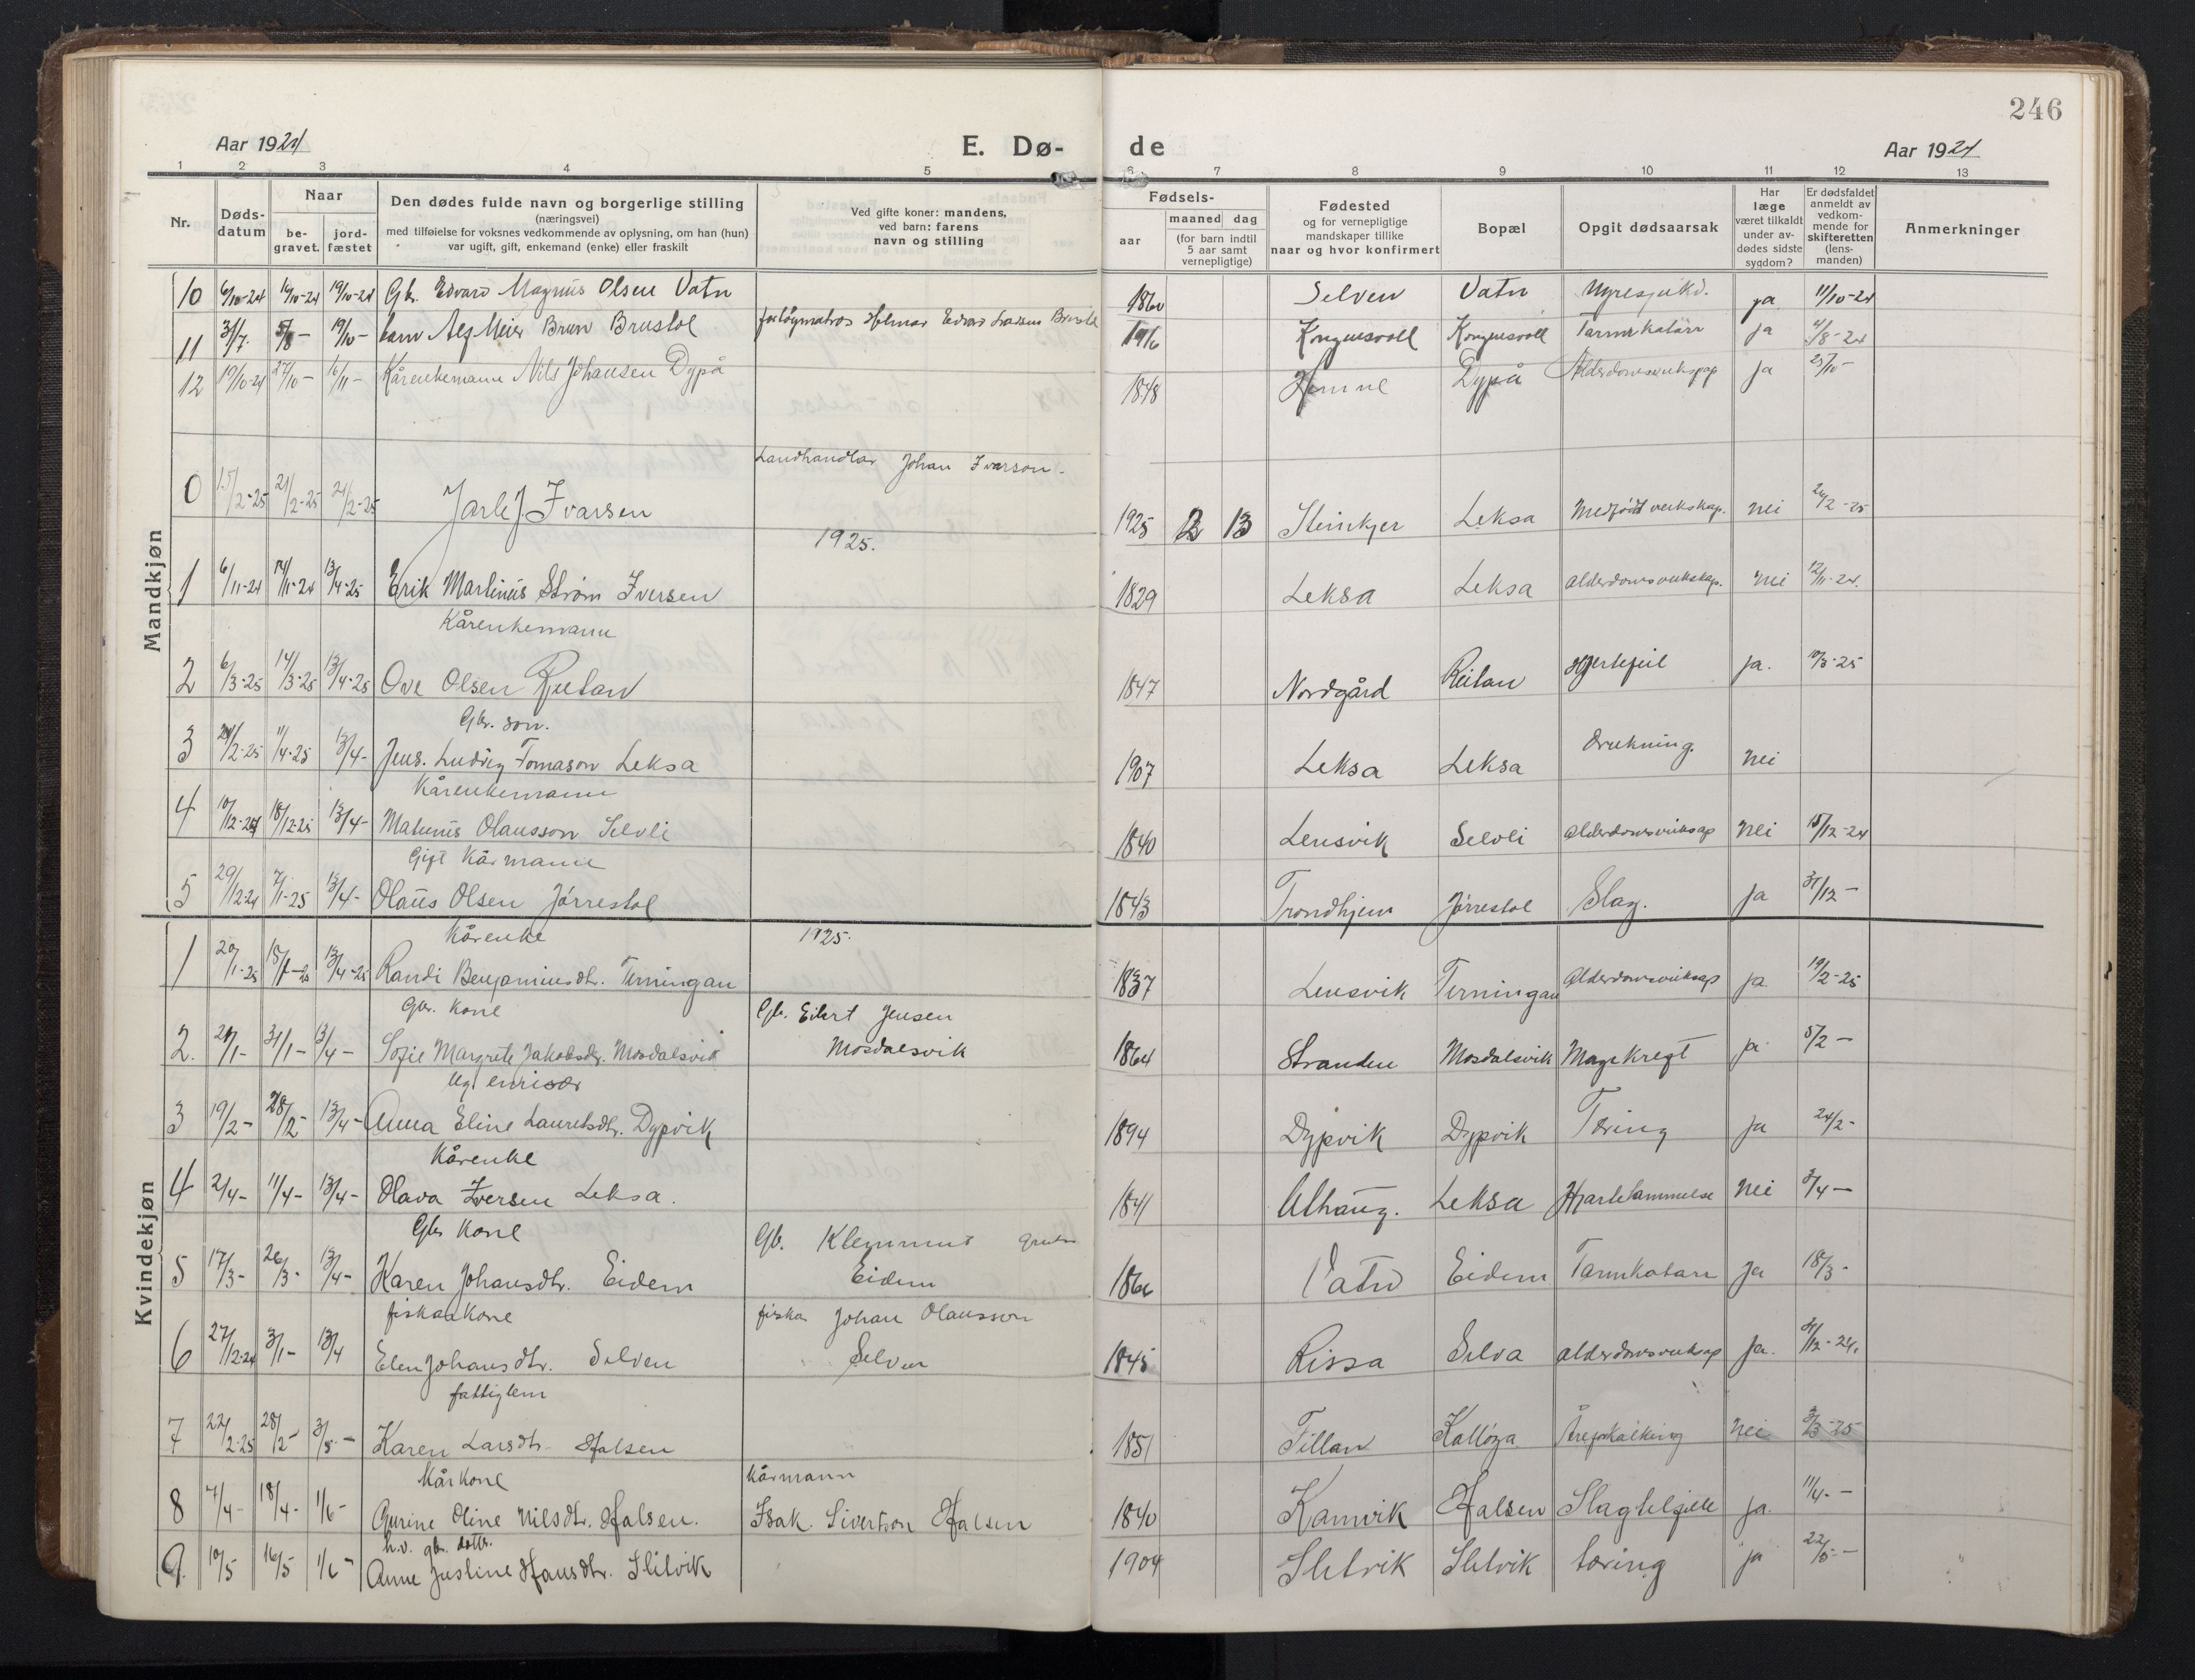 246
Aar 1924
E. Dø-
de
Aar 1924
1 2 3 4 5 6 7 8 9 10 11 12 13
Nr.
Døds-
datum
Naar
be-
gravet.
jord-
fæstet
Den dødes fulde navn og borgerlige stilling
(næringsvei)
med tilføielse for voksnes vedkommende av oplysning, om han (hun)
var ugift, gift, enkemand (enke) eller fraskilt
Ved gifte koner: mandens,
ved barn: farens
navn og stilling
Fødsels-
aar
maaned dag
(for barn indtil
5 aar samt
vernepligtige)
Fødested
og for vernepligtige
mandskaper tillike
naar og hvor konfirmert
Bopæl
Opgit dødsaarsak
Har
læge
været tilkaldt
under av-
dødes sidste
sygdom?
Er dødsfaldet
anmeldt av
vedkom-
mende for
skifteretten
(lens-
manden)
Anmerkninger
Mandkjøn
10 6/10-24 16/10-24 19/10-24 Gbr. Edvard Magnus Olsen Vatn 1860 Selven Vatn Nyresjukd. ja 11/10-24
11 31/7 5/8 - 19/10 - barn Alf Meier Brun Brustol Edvard 1916 Kongensvoll Kongensvoll Tarmkatarr ja 4/8-24
12 19/10-24 27/10 - 16/11 - Kårenkemann Nils Johansen Dypå 1848 Hemne Dypå ja 25/10 -
Landhandlar Johan Ivarson -
0 15/2-25 21/2-25 21/2-25 Jarle J Ivarsen 1925 2 13 Steinkjer Leksa Medfødt veikskap. nei 24/2-25
1925.
1 6/11-24 14/11-24 13/4-25 Erik Martinus Strøm Iversen 1829 Leksa Leksa alderdomsveikskap. nei 12/11-24.
Kårenkemann
2 6/3-25 14/3-25 13/4-25 Ove Olsen Reitan 1847 Nordgård Reitan Hjertefeil ja. 10/3-25
Gbr. son.
3 24/2-25 11/4-25 13/4 - Jens. Ludvig Tomason Leksa 1907 Leksa Leksa drukning. nei
Kårenkemann
4 10/12-24 18/12-25 13/4 - Olausson Selvli 1840 Lensvik Selvli alderdomsveiksap nei 15/12-24
Gift Kårmann
5 29/12-24 7/1-25 13/4 - Olaus Olsen Jørrestol 1843 Trondhjem Jørrestol Slag. ja 31/12 -
Kvindekjøn
Kårenke 1925.
1 20/1-25 13/4-25 Randi Benjaminsdtr. Terningan 1837 Lensvik Terningan alderdomsveiksap ja 19/2-25
Gbr. kone Gbr. Eilert Jensen
2. 21/1 - 31/1 - 13/4 - Sofie Margrete Jakobsdtr. Mosdalsvik Mosdalsvik 1864 Stranden Mosdalsvik Magekreft ja 5/2 -
Ug.
3 19/2 - 28/2 - 13/4 - Anna Eline Lauretsdtr. Dypvik 1894 Dypvik Dypvik Tæring ja 24/2 -
Kårenke
4 2/4 - 11/4 - 13/4 - Olava Iversen Leksa. 1841 Uthaug. Leksa Hjartelammelse nei 3/4 -
Gbr kone Gbr. Klemmet
5 17/3 - 26/3 - 13/4 - Karen Johansdtr. Eidem Eidem Vatn Eidem Tarmkatarr ja 18/3 -
fiskarkone fiskar Johan Olausson
6 27/12-24 3/1 - 13/4 Elen Johansdtr. Selven Selven 1845 Rissa Selva alderdomsveiksap ja. 31/12-24.
fattiglem
7 22/2-25 28/2 - 3/5 - Karen Larsdtr. Halsen 1851 Tillan Åreforkalking nei 3/3-25
Kårkone Kårmann
8 7/4 - 18/4 - 1/6 - Gurine Oline Nilsdtr. Halsen. Isak. Sivertson Halsen 1840 Kamvik Halsen Slagtilfelle ja. 11/4 -
h.v. gbr. dotter.
9. 10/5 16/5 1/6 - Anne Justine Hansdtr. Sletvik 1904 Sletvik Sletvik tæring ja 22/5 -